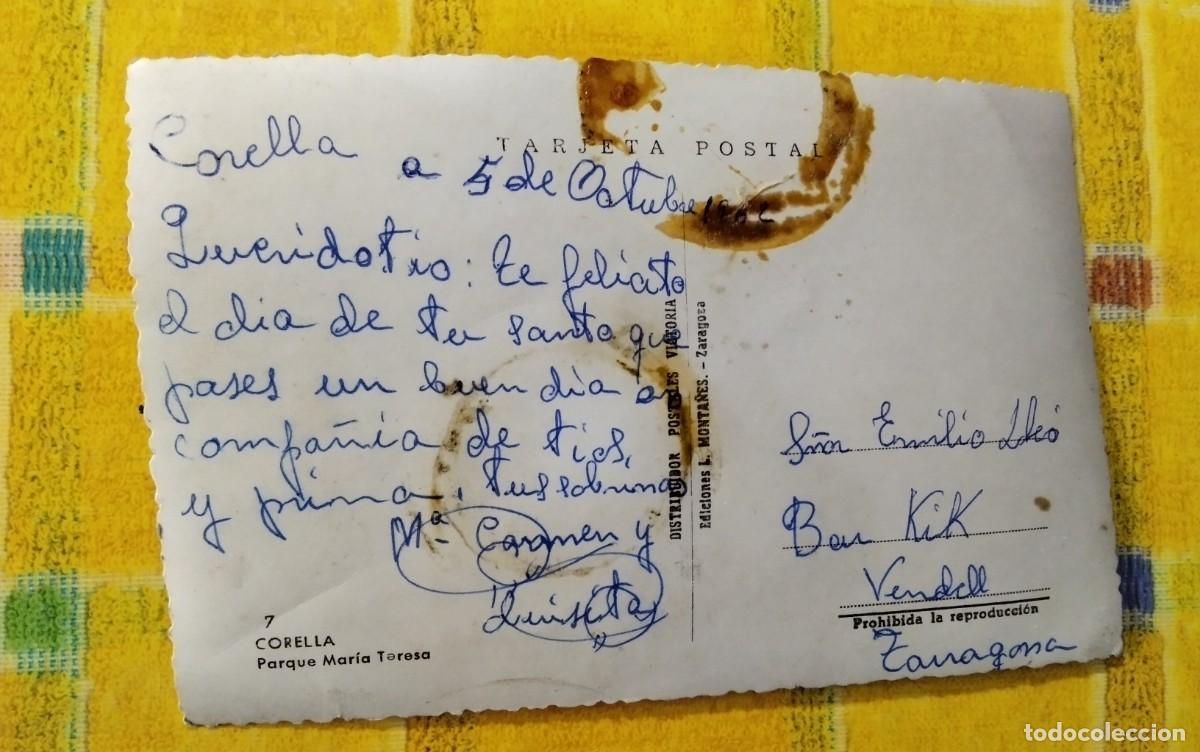 TARJETA POSTAL
Corella a 5 de Octubre
Querido tio: te felicito
el dia de tu santo que
pases un buen dia en
compañia de tios,
y prima. tus sobrinas
Mª Carmen y
Luisita
7
CORELLA
Parque María Teresa
DISTRIBUIDOR POSTALES VICTORIA
Ediciones L. MONTAÑES. - Zaragoza
Sñor Emilio
Bar KiK
Vendell
Prohibida la reproducción
Tarragona
todocoleccion